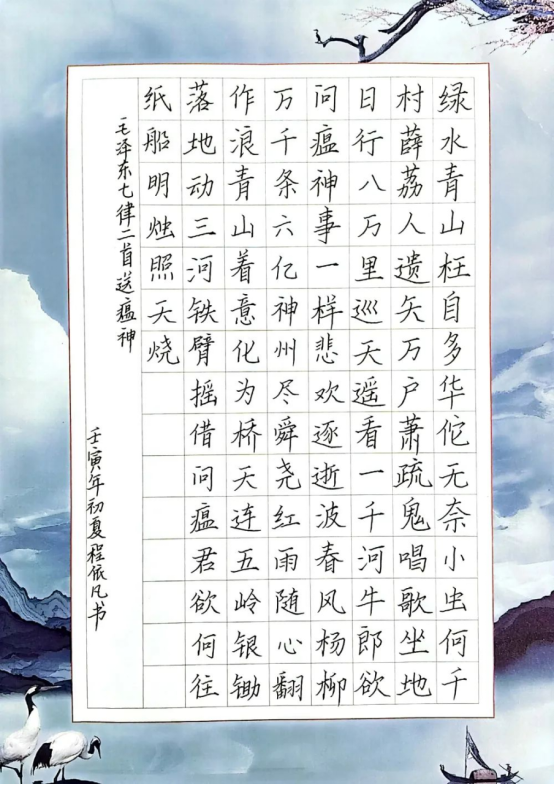 绿水青山枉自多华佗无奈小虫何千
村薜荔人遗矢万户萧疏鬼唱歌坐地
日行八万里巡天遥看一千河牛郎欲
问瘟神事一样悲欢逐逝波春风杨柳
万千条六亿神州尽舜尧红雨随心翻
作浪青山着意化为桥天连五岭银锄
落地动三河铁臂摇借问瘟君欲何往
纸船明烛照天烧
毛泽东七律二首送瘟神
壬寅年初夏程依凡书